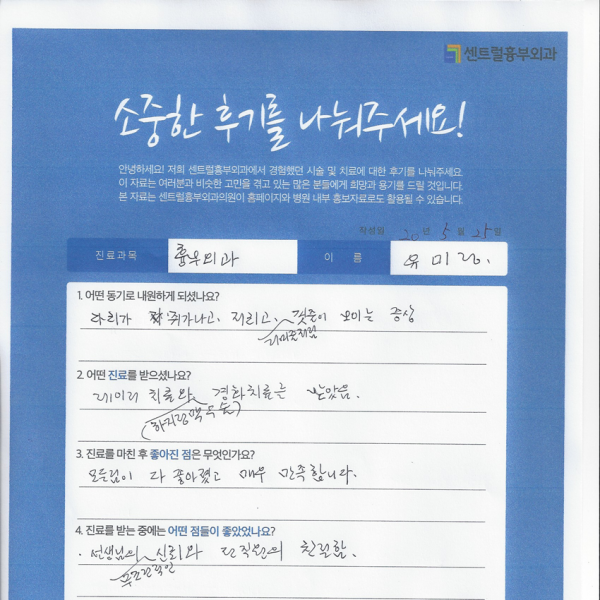 센트럴흉부외과
소중한 후기를 나눠주세요!
안녕하세요! 저희 센트럴흉부외과에서 경험했던 시술 및 치료에 대한 후기를 나눠주세요.
이 자료는 여러분과 비슷한 고민을 겪고 있는 많은 분들에게 희망과 용기를 드릴 것입니다.
본 자료는 센트럴흉부외과의원이 홈페이지와 병원 내부 홍보자료로도 활용될 수 있습니다.
작성일 20년 5월 25일
진료과목 흉부외과 이 름 유미라.
1. 어떤 동기로 내원하게 되셨나요?
다리가 쥐가나고, 저리고, 핏줄이 보이는 증상
거미줄처럼
2. 어떤 진료를 받으셨나요?
레이저 치료와 경화치료를 받았음.
(하지정맥수술)
3. 진료를 마친 후 좋아진 점은 무엇인가요?
모든점이 다 좋아졌고 매우 만족합니다.
4. 진료를 받는 중에는 어떤 점들이 좋았었나요?
· 선생님의 신뢰와 전직원의 친절함.
무조건적인